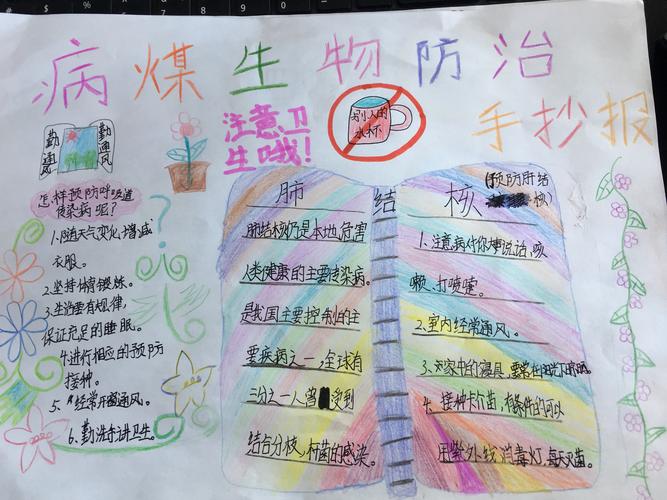 病煤生物防治
手抄报
注意卫
生哦！
别人的
水杯
勤通风
勤通风
怎样预防呼吸道
传染病呢？
1.随天气变化，增减
衣服。
2.坚持体育锻炼。
3.生活要有规律，
保证充足的睡眠。
4.进行相应的预防
接种。
5.经常开窗通风。
6.勤洗手讲卫生。
2020
肺结核
肺结核仍是本地危害
人类健康的主要传染病。
是我国主要控制的主
要疾病之一，全球有
三分之一人曾受到
结合分枝，杆菌的感染。
(预防肝结
核)
1.注意病付你大声说话、咳
嗽、打喷嚏。
2.室内经常通风。
3.对家中的寝具，要常在阳光下
4.接种卡介苗，有条件的可以
用紫外线消毒灯，每天灭菌。